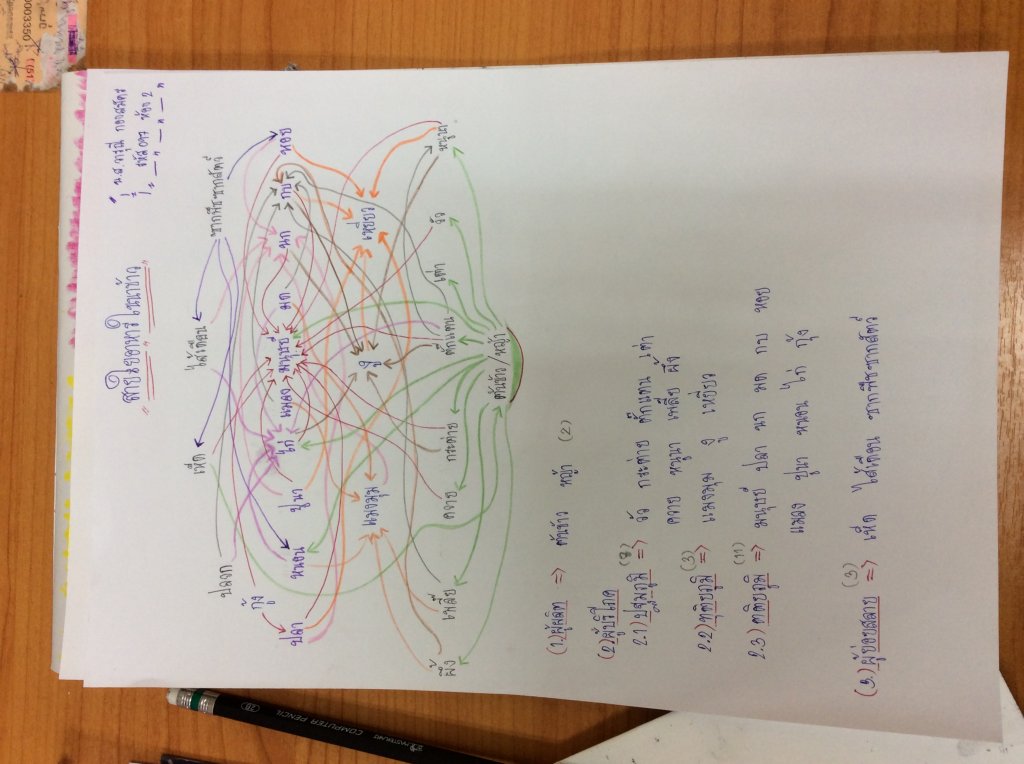 สายใยอาหารในนาข้าว
น.ส.
ห้อง 2
ปลวก เห็ด ไส้เดือน ซากพืชซากสัตว์
กุ้ง
ปลา หนอน ปูนา ไก่ แมลง มนุษย์ มด นก กบ หอย
แมงมุม งู เหยี่ยว
ผึ้ง เพลี้ย ควาย กระต่าย ตั๊กแตน เต่า วัว หนูนา
ต้นข้าว/หญ้า
(1) ผู้ผลิต => ต้นข้าว หญ้า (2)
(2) ผู้บริโภค
2.1) ปฐมภูมิ (8) => วัว กระต่าย ตั๊กแตน เต่า
ควาย หนูนา เพลี้ย ผึ้ง
2.2) ทุติยภูมิ (3) => แมงมุม งู เหยี่ยว
2.3) ตติยภูมิ (11) => มนุษย์ ปลา นก มด กบ หอย
แมลง ปูนา หนอน ไก่ กุ้ง
(3.) ผู้ย่อยสลาย (3) => เห็ด ไส้เดือน ซากพืชซากสัตว์
COMPUTER PENCIL
2B